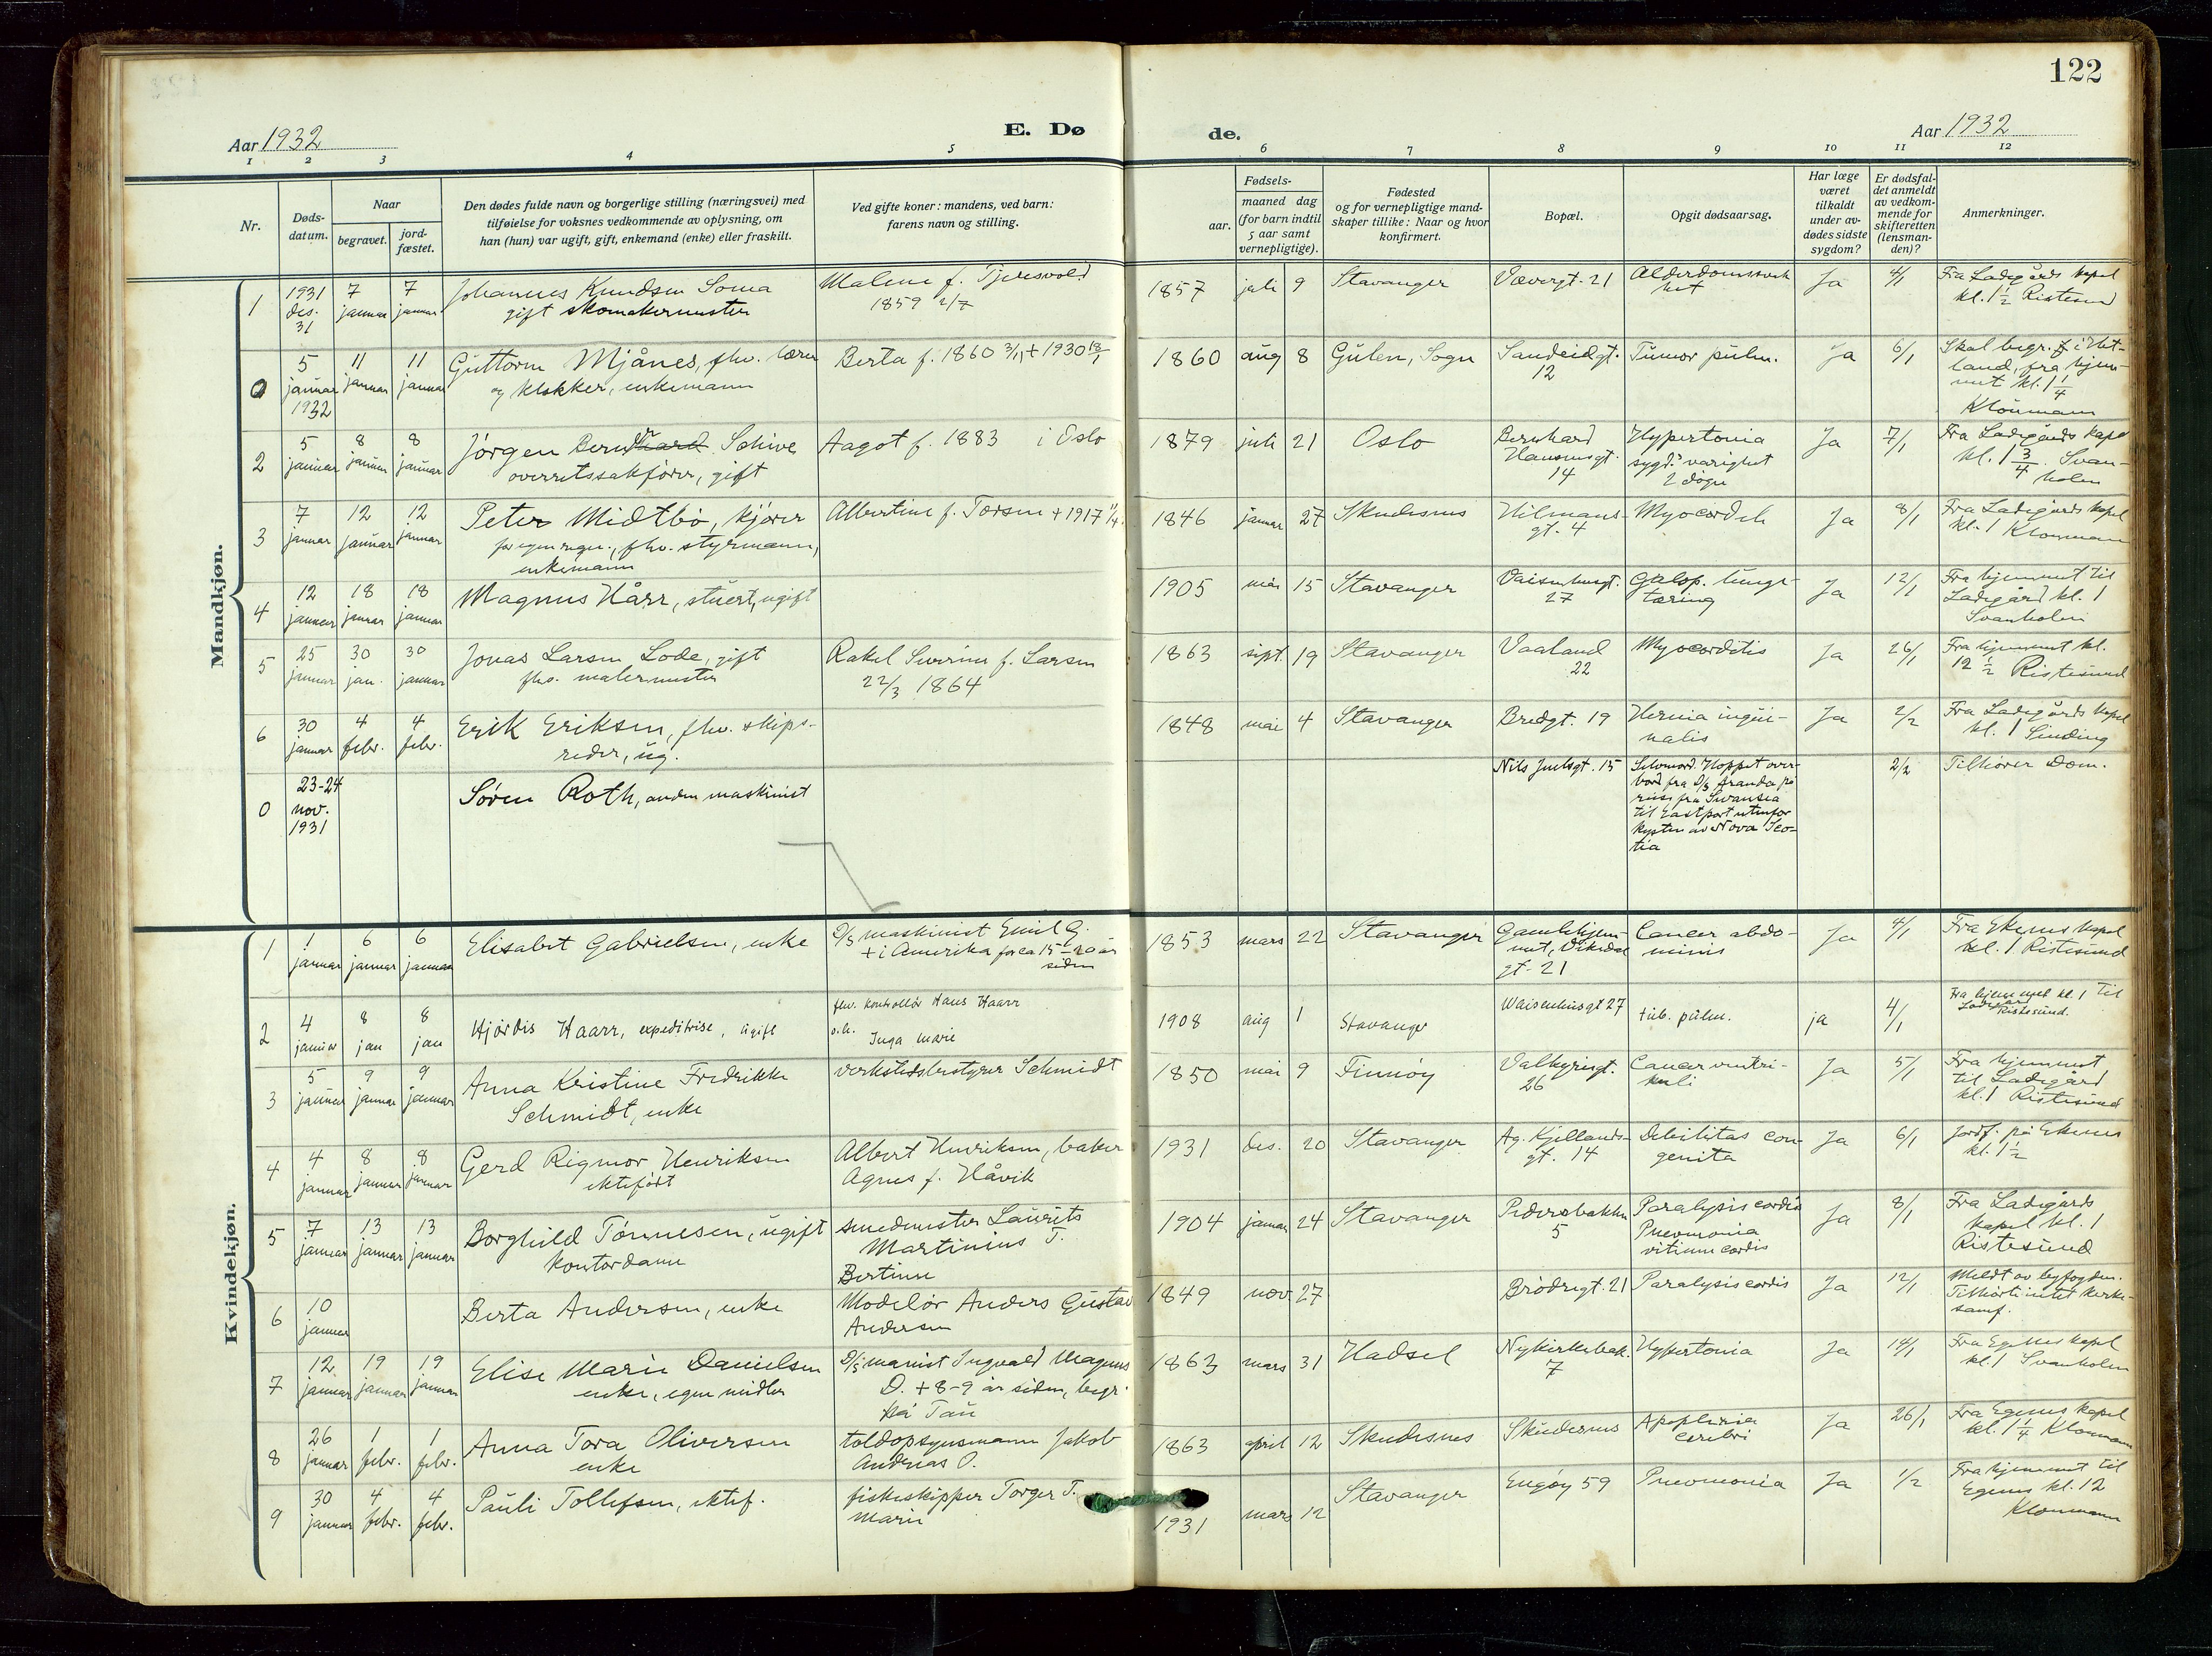 122
Aar 1932
E. Dø
de.
Aar 1932
1 2 3 4 5 6 7 8 9 10 11 12
Nr.
Døds-
datum.
Naar
begravet.
jord-
fæstet.
Den dødes fulde navn og borgerlige stilling (næringsvei) med
tilføielse for voksnes vedkommende av oplysning, om
han (hun) var ugift, gift, enkemand (enke) eller fraskilt.
Ved gifte koner: mandens, ved barn:
farens navn og stilling.
Fødsels-
aar.
maaned dag
(for barn indtil
5 aar samt
vernepligtige).
Fødested
og for vernepligtige mand-
skaper tillike: Naar og hvor
konfirmert.
Bopæl.
Opgit dødsaarsag.
Har læge
været
tilkaldt
under av-
dødes sidste
sygdom?
Er dødsfal-
det anmeldt
av vedkom-
mende for
skifteretten
(lensman-
den)?
Anmerkninger.
Mandkjøn.
1
1931
des.
31
7
januar
7
januar
Johannes Knudsen Soma
gift skomakermester
Malene f. Tjeresvold
1859 2/7
1857 juli 9
Stavanger
Vævergt. 21
Alderdomssvak
het
Ja
4/1
Fra Ladegårds kapel
kl. 1 1/2 Ristesund
0
5
januar
1932
11
januar
11
januar
Guttorm Mjånes, fhv. lærer
og klokker, enkemann
Berta f. 1860 3/11 + 1930 18/1
1860 aug 8
Gulen, Sogn
Sandeidgt.
12
Tumor pulm.
Ja
6/1
Skal begr. i Het-
land, fra hjem-
met kl. 1 1/4
Kloumann
2
5
januar
8
januar
8
januar
Jørgen Schive
overretssakfører, gift
Aagot f. 1883 i Oslo
1879 juli 21
Oslo
Bernhard
Hansensgt.
14
Hypertonia
sygd.s varighet
2 døgn
Ja
7/1
Fra Ladegårds kapel
kl. 1 3/4 Svan-
holm
3
7
januar
12
januar
12
januar
Peter Midtbø, kjører
for egen regn., fhv. styrmann,
enkemann
Albertine f. Torsen + 1917
1846 januar 27
Skudesnes
Hilmans-
gt. 4
Ja
8/1
Fra Ladegårds kapel
kl. 1 Kloumann
4
12
januar
18
januar
18
januar
Magnus Hårr, stuert, ugift
1905 mai 15
Stavanger
Vaisenhusgt.
27
Galop. lunge-
tæring
Ja
12/1
Fra hjemmet til
Ladegård kl. 1
Svanholm
5
25
januar
30
jan.
30
januar
Jonas Larsen Lode, gift
fhv. malermester
Rakel Severine f. Larsen
22/3 1864
1863 sept. 19
Stavanger
Vaaland
22
Myocarditis
Ja
26/1
Fra hjemmet kl.
12 1/2 Ristesund
6
30
januar
4
febr.
4
febr.
Erik Eriksen, fhv. skips-
reder, ug.
1848 mai 4
Stavanger
Bredgt. 19
Hernia ingui-
nalis
Ja
2/2
Fra Ladegårds kapel
kl. 1 Sinding
0
23-24
nov.
1931
Søren Roth, anden maskinist
Nils Juelsgt. 15
Selvmord. Hoppet over-
bord fra D/S Aranda på
reise fra Swansea
til Eastport utenfor
kysten av Nova Sco-
tia
2/2
Tilhører Dom.
Kvindekjøn.
1
1
januar
6
januar
6
januar
Elisabet Gabrielsen, enke
D/S maskinist Emil G.
+ i Amerika for ca 15-20 år
siden
1853 mars 22
Stavanger
Gamlehjem-
met, Vikedal
gt. 21
Cancer abdo-
minis
Ja
4/1
Fra Ekenes kapel
kl. 1 Ristesund
2
4
januar
8
jan
8
jan
Hjørdis Haarr, expeditrise, ugift
fhv. kontrollør Hans Haarr
o.h.
Inga Marie
1908 aug 1
Stavanger
Waisenhusgt 27
tub. pulm.
ja
4/1
Fra hjemmet kl. 1 til
Ladegård
Ristesund.
3
5
januar
9
januar
9
januar
Anna Kristine Fredrikke
Schmidt, enke
verkstedsbestyrer Schmidt
1850 mai 9
Finnøy
Valkyriegt.
26
Cancer ventri-
kuli
Ja
5/1
Fra hjemmet
til Ladegård
kl. 1 Ristesund
4
4
januar
8
januar
8
januar
Gerd Rigmor Henriksen
ektefødt
Albert Henriksen, baker
Agnes f. Håvik
1931 des. 20
Stavanger
Ag. Kjellands-
gt. 14
Debilitas con-
genita
Ja
6/1
Jordf. på Ekenes
kl. 1 1/2
5
7
januar
13
januar
13
januar
Borghild Tønnesen, ugift
kontordame
smedmester Laurits
Martinius T.
Bertine
1904 januar 24
Stavanger
Pedersbakken
5
Paralysis cordis
Pneumonia
vitium cordis
Ja
8/1
Fra Ladegårds
kapel kl. 1
Ristesund
6
10
januar
Berta Andersen, enke
Modelør Anders Gustav
Andersen
1849 nov. 27
Brødregt. 21
Paralysis cordis
Ja
12/1
Meldt av byfogden.
Tilhørte intet kirke-
samf.
7
12
januar
19
januar
19
januar
Elise Marie Danielsen
enke, egne midler
D/S Ingvald Magnus
D. + 8-9 år siden, begr.
på Tau
1863 mars 31
Hadsel
Nykirkebak.
7
Hypertonia
Ja
14/1
Fra Egenes kapel
kl. 1 Svanholm
8
26
januar
1
febr.
1
febr.
Anna Tora Oliversen
enke
toldopsynsmann Jakob
Andreas O.
1863 april 12
Skudesnes
Skudesnes
Apoplexia
cerebri
Ja
26/1
Fra Egenes kapel
kl. 1 1/4 Kloumann
9
30
januar
4
febr.
4
febr.
Pauli Tollefsen, ektef.
fiskeskipper Torger T.
Marie
1931 mars 12
Stavanger
Engøy 59
Pneumonia
Ja
1/2
Fra hjemmet til
Egenes kl. 12
Kloumann